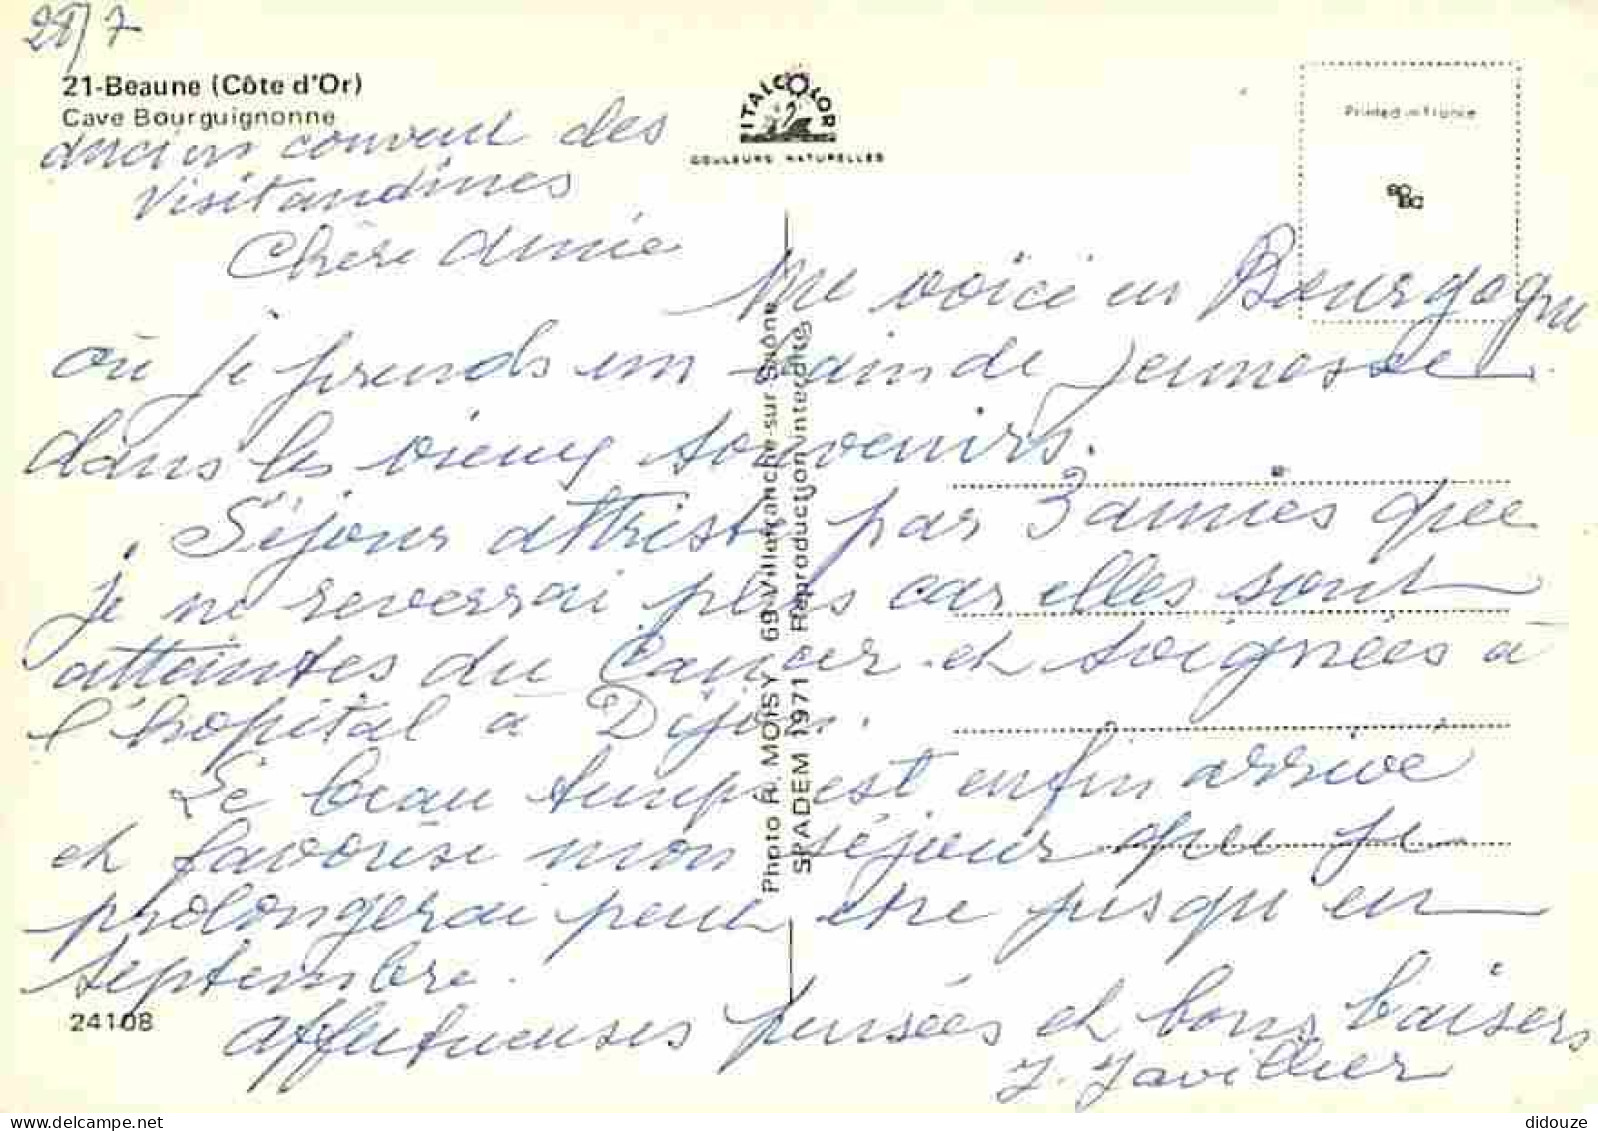 28/7
21-Beaune (Côte d'Or)
Cave Bourguignonne
ancien couvent des
Visitandines
ITALCOLOR
COULEURS NATURELLES
Printed in France
Chère Amie
Me voici en Bourgogne
où je prends un bain de jeunesse
dans les vieux souvenirs.
Séjour attristé par 3 amies que
je ne reverrai plus car elles sont
atteintes du Cancer et soignées à
l'hopital à Dijon.
Le beau temps est enfin arrivé
et favorise mon séjour que je
prolongerai peut etre jusqu'en
septembre.
Affectueuses pensées et bons baisers
J. Javillier
24108
Photo R. MOISY 69-Villefranche-sur-Saône
SPADEM 1971 Reproduction interdite
didouze